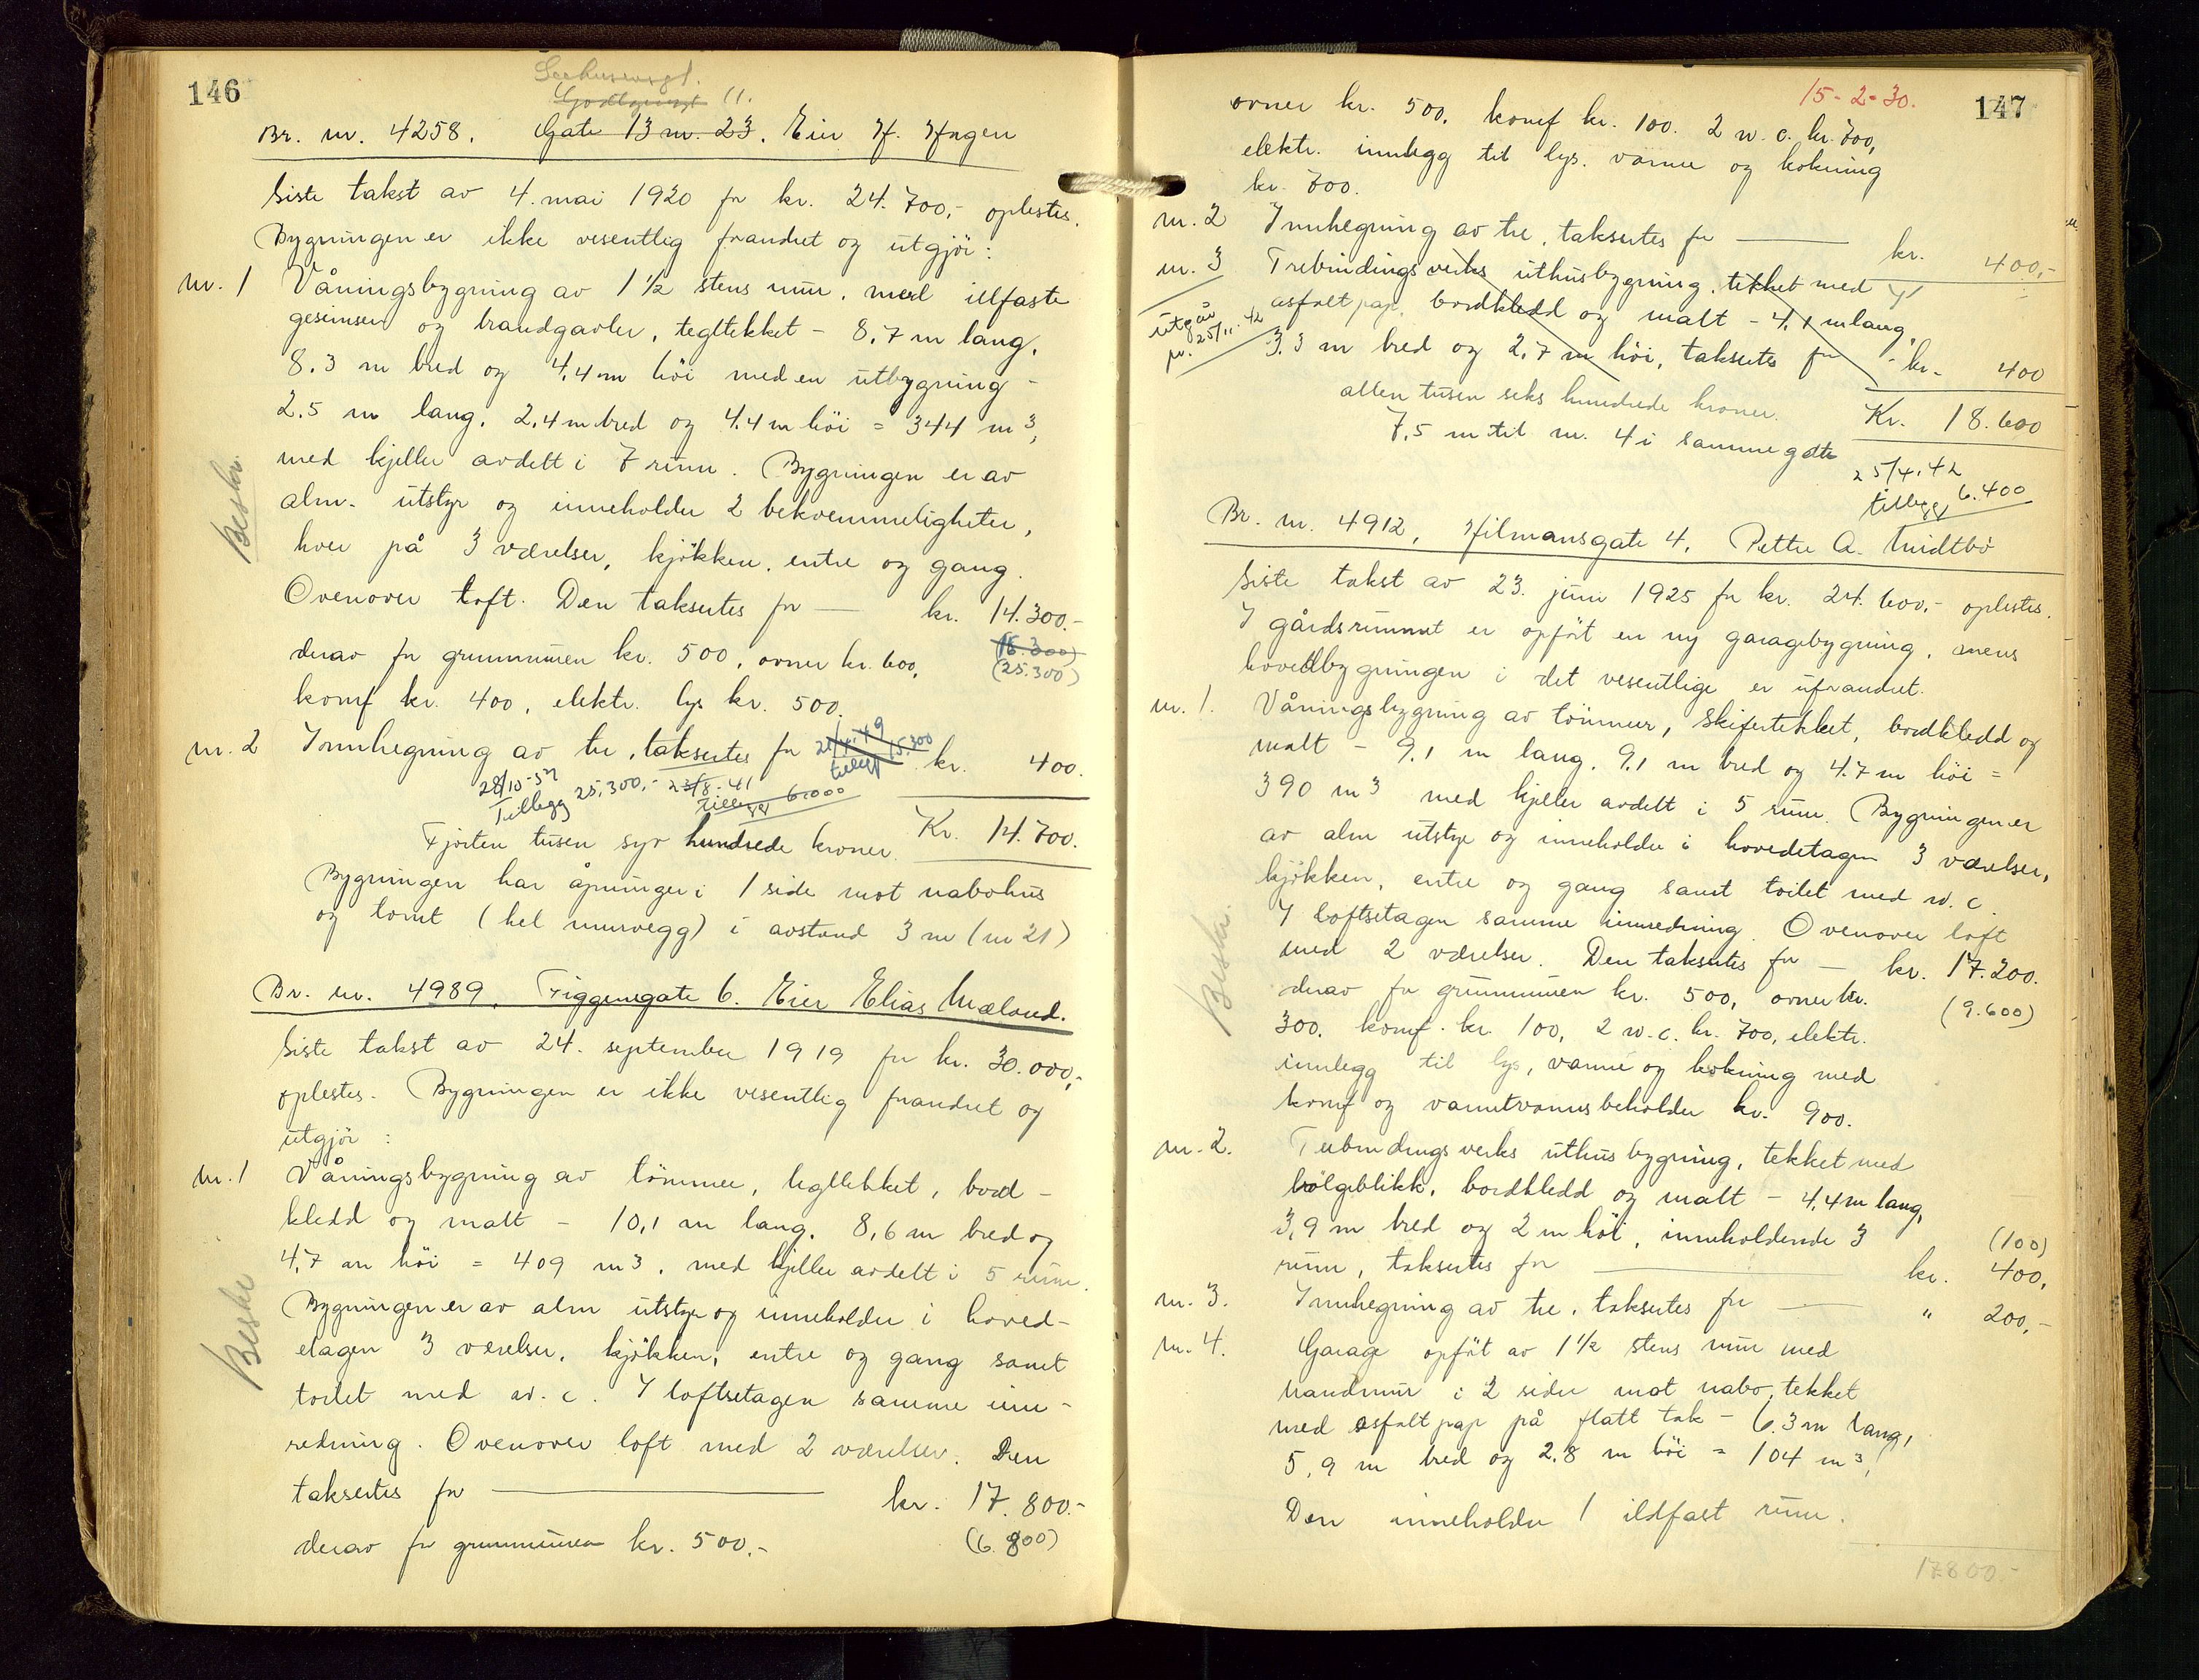 146
11.
Br. nr. 4258. Gate 13 nr. 23. Eier H. Hagen
Siste takst av 4. mai 1920 for kr. 24.700,- oplestes.
Bygningen er ikke vesentlig forandret og utgjör:
nr. 1 Våningsbygning av 1 1/2 stens mur, med ildfaste
gesimser og brandgavler, tegltekket - 8,7 m lang,
8.3 m bred og 4,4 m höi med en utbygning -
2.5 m lang, 2,4 m bred og 4,4 m höi = 344 m3,
med kjeller avdelt i 7 rum. Bygningen er av
Beskr.
alm. utstyr og inneholder 2 bekvemmeligheter,
hver på 3 værelser, kjökken, entre og gang.
Ovenover loft. Den takseres for — kr. 14.300.-
(18.300)
derav for grunnmuren kr. 500, ovner kr. 600,
(25.300)
komf kr. 400, elektr. lys kr. 500.
nr. 2 Innhegning av tre, takseres for kr. 400.
28/4.49 tillegg 15.300
28/10-52 Tillegg 25,300,- 23/8-41 Tillegg 6.000
Fjorten tusen syv hundrede kroner. Kr. 14.700.
Bygningen har åpninger i 1 side mot nabohus
og tomt (hel murvegg) i avstand 3 m (nr 21)
Br. nr. 4989. Figgenegate 6. Eier Elias Mæland.
Siste takst av 24. september 1919 for kr. 30.000,-
oplestes. Bygningen er ikke vesentlig forandret og
utgjör :
nr. 1 Våningsbygning av tömmer, tegltekket, bord-
kledd og malt - 10,1 m lang, 8,6 m bred og
4,7 m höi = 409 m3, med kjeller avdelt i 5 rum.
Beskr
Bygningen er av alm utstyr og inneholder i hoved-
etagen 3 værelser, kjökken, entre og gang samt
toilet med w. c. I loftsetagen samme inn-
redning. Ovenover loft med 2 værelser. Den
takseres for — kr. 17.800.-
derav for grunnmuren kr. 500.- (6.800)
15-2-30.
147
ovner kr. 500, komf kr. 100. 2 w. c. kr. 700,
elektr. innlegg til lys. varme og kokning
kr. 700.
nr. 2 Innhegning av tre, takseres for — kr. 400,-
nr. 3 Trebindingsverks uthusbygning, tekket med
asfaltpap, bordkledd og malt - 4,1 m lang,
utgår pr. 25/11.42
3,3 m bred og 2,7 m höi, takseres for - kr. 400
atten tusen seks hundrede kroner. Kr. 18.600
7,5 m til nr. 4 i samme gate
25/4.42
tillegg 6.400
Br. nr. 4912, Hilmansgate 4, Petter A. Midtbö
Siste takst av 23. juni 1925 for kr. 24.600,- oplestes.
I gårdsrummet er opfört en ny garagebygning, mens
hovedbygningen i det vesentlige er uforandret.
nr. 1. Våningsbygning av tömmer, skifertekket, bordkledd og
malt - 9,1 m lang, 9,1 m bred og 4.7 m höi =
390 m3 med kjeller avdelt i 5 rum. Bygningen er
av alm utstyr og inneholder i hovedetagen 3 værelser,
kjökken, entre og gang samt toilet med w. c.
I loftsetagen samme innredning. Ovenover loft
Beskr.
med 2 værelser. Den takseres for — kr. 17.200.
derav for grunnmuren kr. 500, ovner kr. (9.600)
300. komf. kr. 100, 2 w.c. kr. 700, elektr.
innlegg til lys, varme og kokning med
komf og varmtvannsbeholder kr. 900.
nr. 2. Trebindingsverks uthusbygning, tekket med
bölgeblikk, bordkledd og malt - 4,4 m lang,
3,9 m bred og 2 m höi, inneholdende 3 (100)
rum, takseres for — kr. 400,
nr. 3. Innhegning av tre, takseres for — " 200,-
nr. 4. Garage opfört av 1 1/2 stens mur med
brandmur i 2 sider mot nabo, tekket
med asfaltpap på flatt tak - 6.3 m lang,
5,9 m bred og 2.8 m höi = 104 m3,
Den inneholder 1 ildfast rum.
17800.-